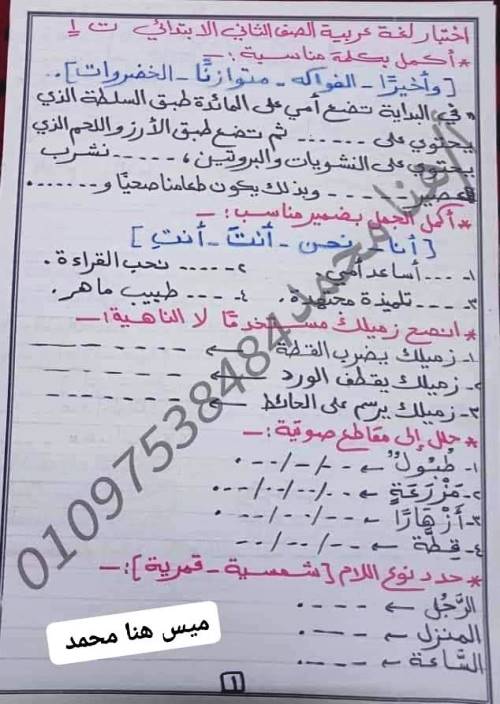 اختبار لغة عربية الصف الثاني الابتدائي ت ١
* أكمل بكلمة مناسبة :-
[وأخيرًا - الفواكه - متوازنًا - الخضروات].
* في البداية تضع أمي على المائدة طبق السلطة الذي
يحتوي على ...... ثم تضع طبق الأرز واللحم الذي
يحتوي على النشويات والبروتين، ..... نشرب
عصير .... وبذلك يكون طعامنا صحيًا و......
* أكمل الجمل بضمير مناسب :-
[أنا - نحن - أنتَ - أنتِ]
١- .... أساعد أمي. ٢- ..... نحب القراءة.
٣- .... تلميذة مجتهدة. ٤- .... طبيب ماهر.
* انصح زميلك مستخدمًا لا الناهية :-
١- زميلك يضرب القطة ← ------
٢- زميلك يقطف الورد ← ------
٣- زميلك يرسم على الحائط ← ------
* حلل إلى مقاطع صوتية :-
١- طُبُولٌ ← --/--/--
٢- مَزْرَعَةٍ ← --/--/--/--
٣- أَزْهَارًا ← --/--/--
٤- قِطَّة ← --/--/--
* حدد نوع اللام [شمسية - قمرية] :-
الرَّجُل ← ----
المنزل ← ----
السَّاعة ← ----
ميس هنا محمد
١
هنا محمد 01097538484